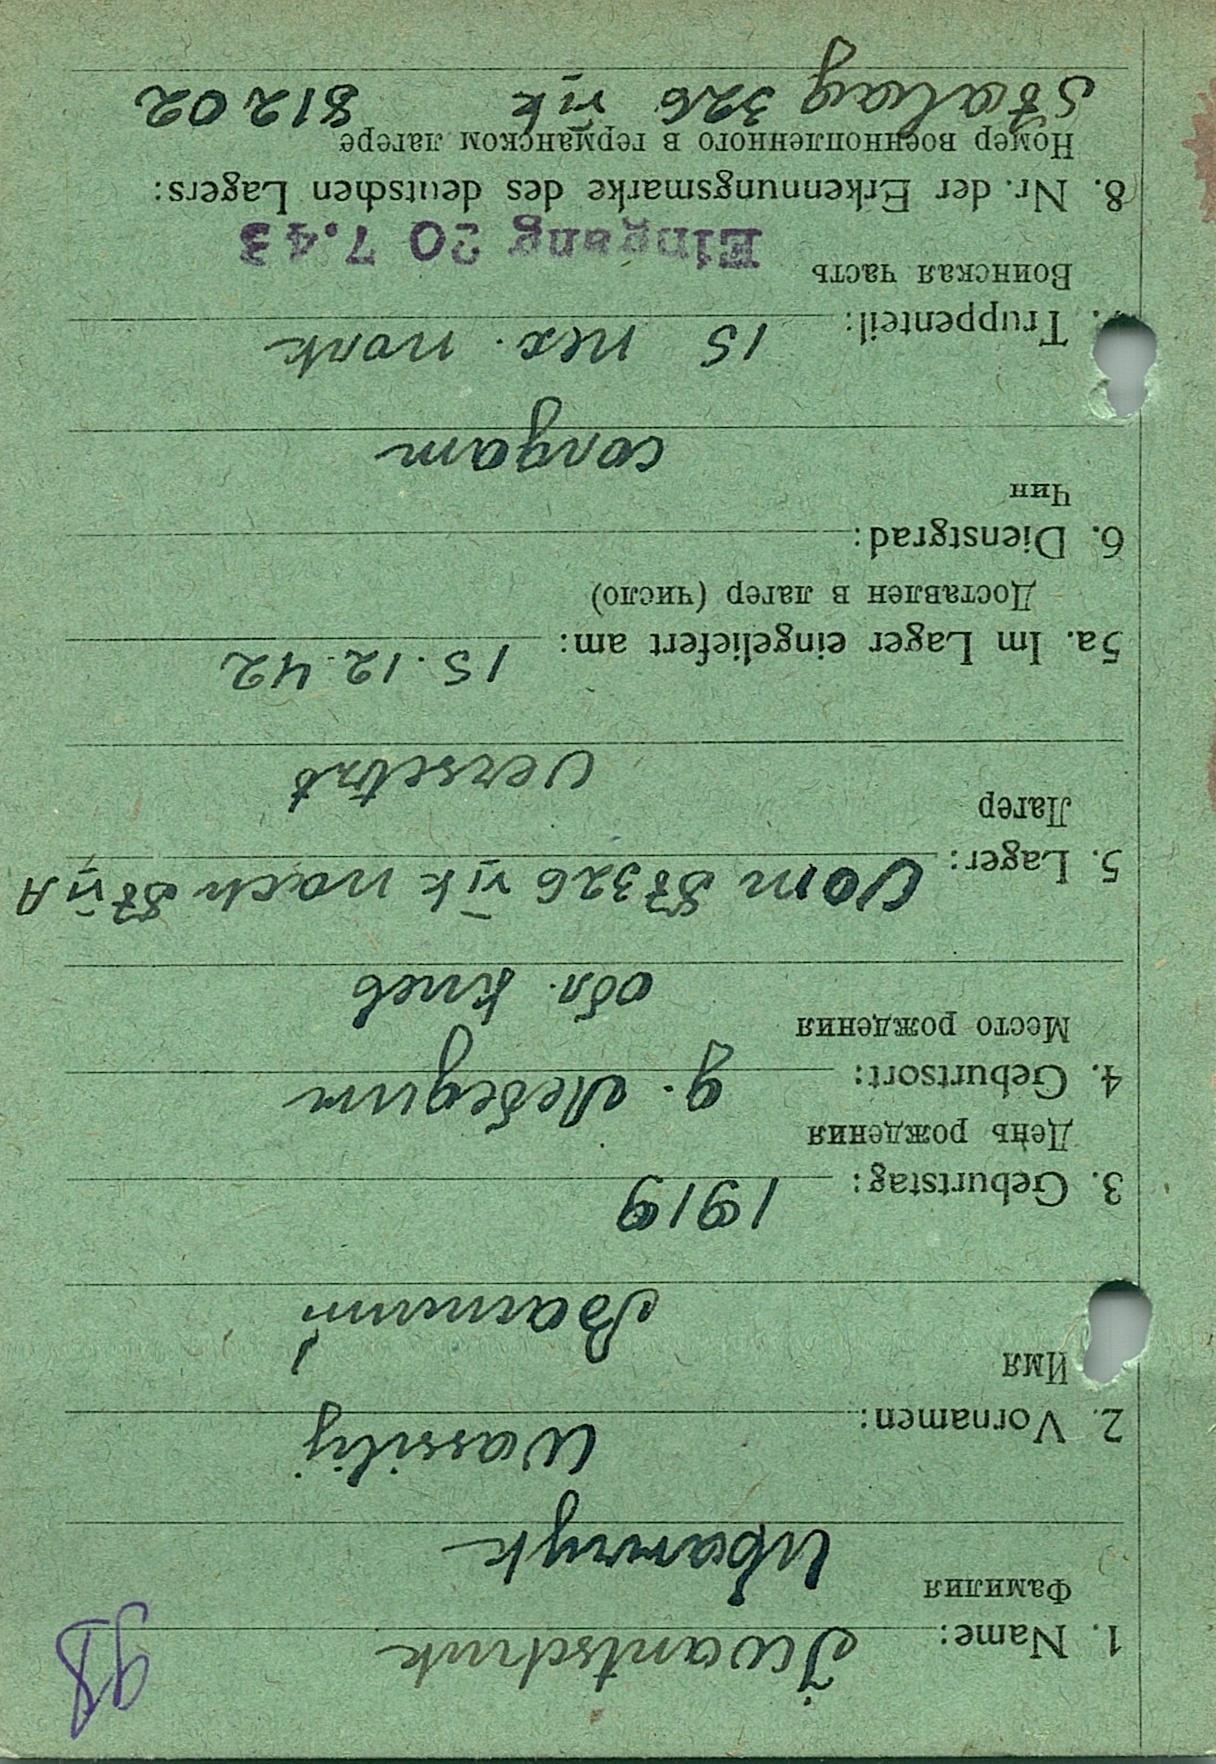 1. Name: Iwantschuk
Фамилия
Иванчук
2. Vornamen: Wassilij
Имя
Василий
3. Geburtstag: 1919
День рождения
4. Geburtsort: д. Медведин
Место рождения
обл. Киев
5. Lager: Vom St 326 VI K nach St VI A
Лагер
versetzt
5a. Im Lager eingeliefert am: 15.12.42
Доставлен в лагер (число)
6. Dienstgrad:
Чин
солдат
7. Truppenteil: 15 пех. полк
Воинская часть
Eingang 20 7.43
8. Nr. der Erkennungsmarke des deutschen Lagers:
Номер военнопленного в германском лагере
Stalag 326 VI K 81202